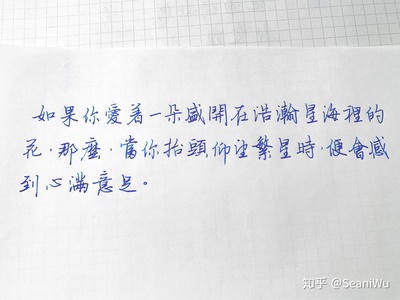 如果你愛着一朵盛開在浩瀚星海裡的
花，那麼，當你抬頭仰望繁星時，便會感
到心滿意足。
知乎 @SeaniWu